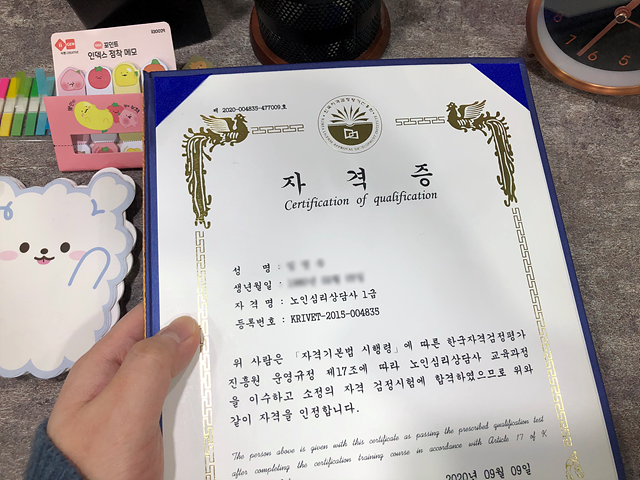 포인트
인덱스 점착 메모
제 2020-004835-477009호
자 격 증
Certification of qualification
성 명 :
생년월일 :
자 격 명 : 노인심리상담사 1급
등록번호 : KRIVET-2015-004835
위 사람은 「자격기본법 시행령」에 따른 한국자격검정평가
진흥원 운영규정 제17조에 따라 노인심리상담사 교육과정
을 이수하고 소정의 자격 검정시험에 합격하였으므로 위와
같이 자격을 인정합니다.
The person above is given with this certificate as passing the prescribed qualification test
after completing the certification training course in accordance with Article 17 of K
2020년 09월 09일
5
6
7